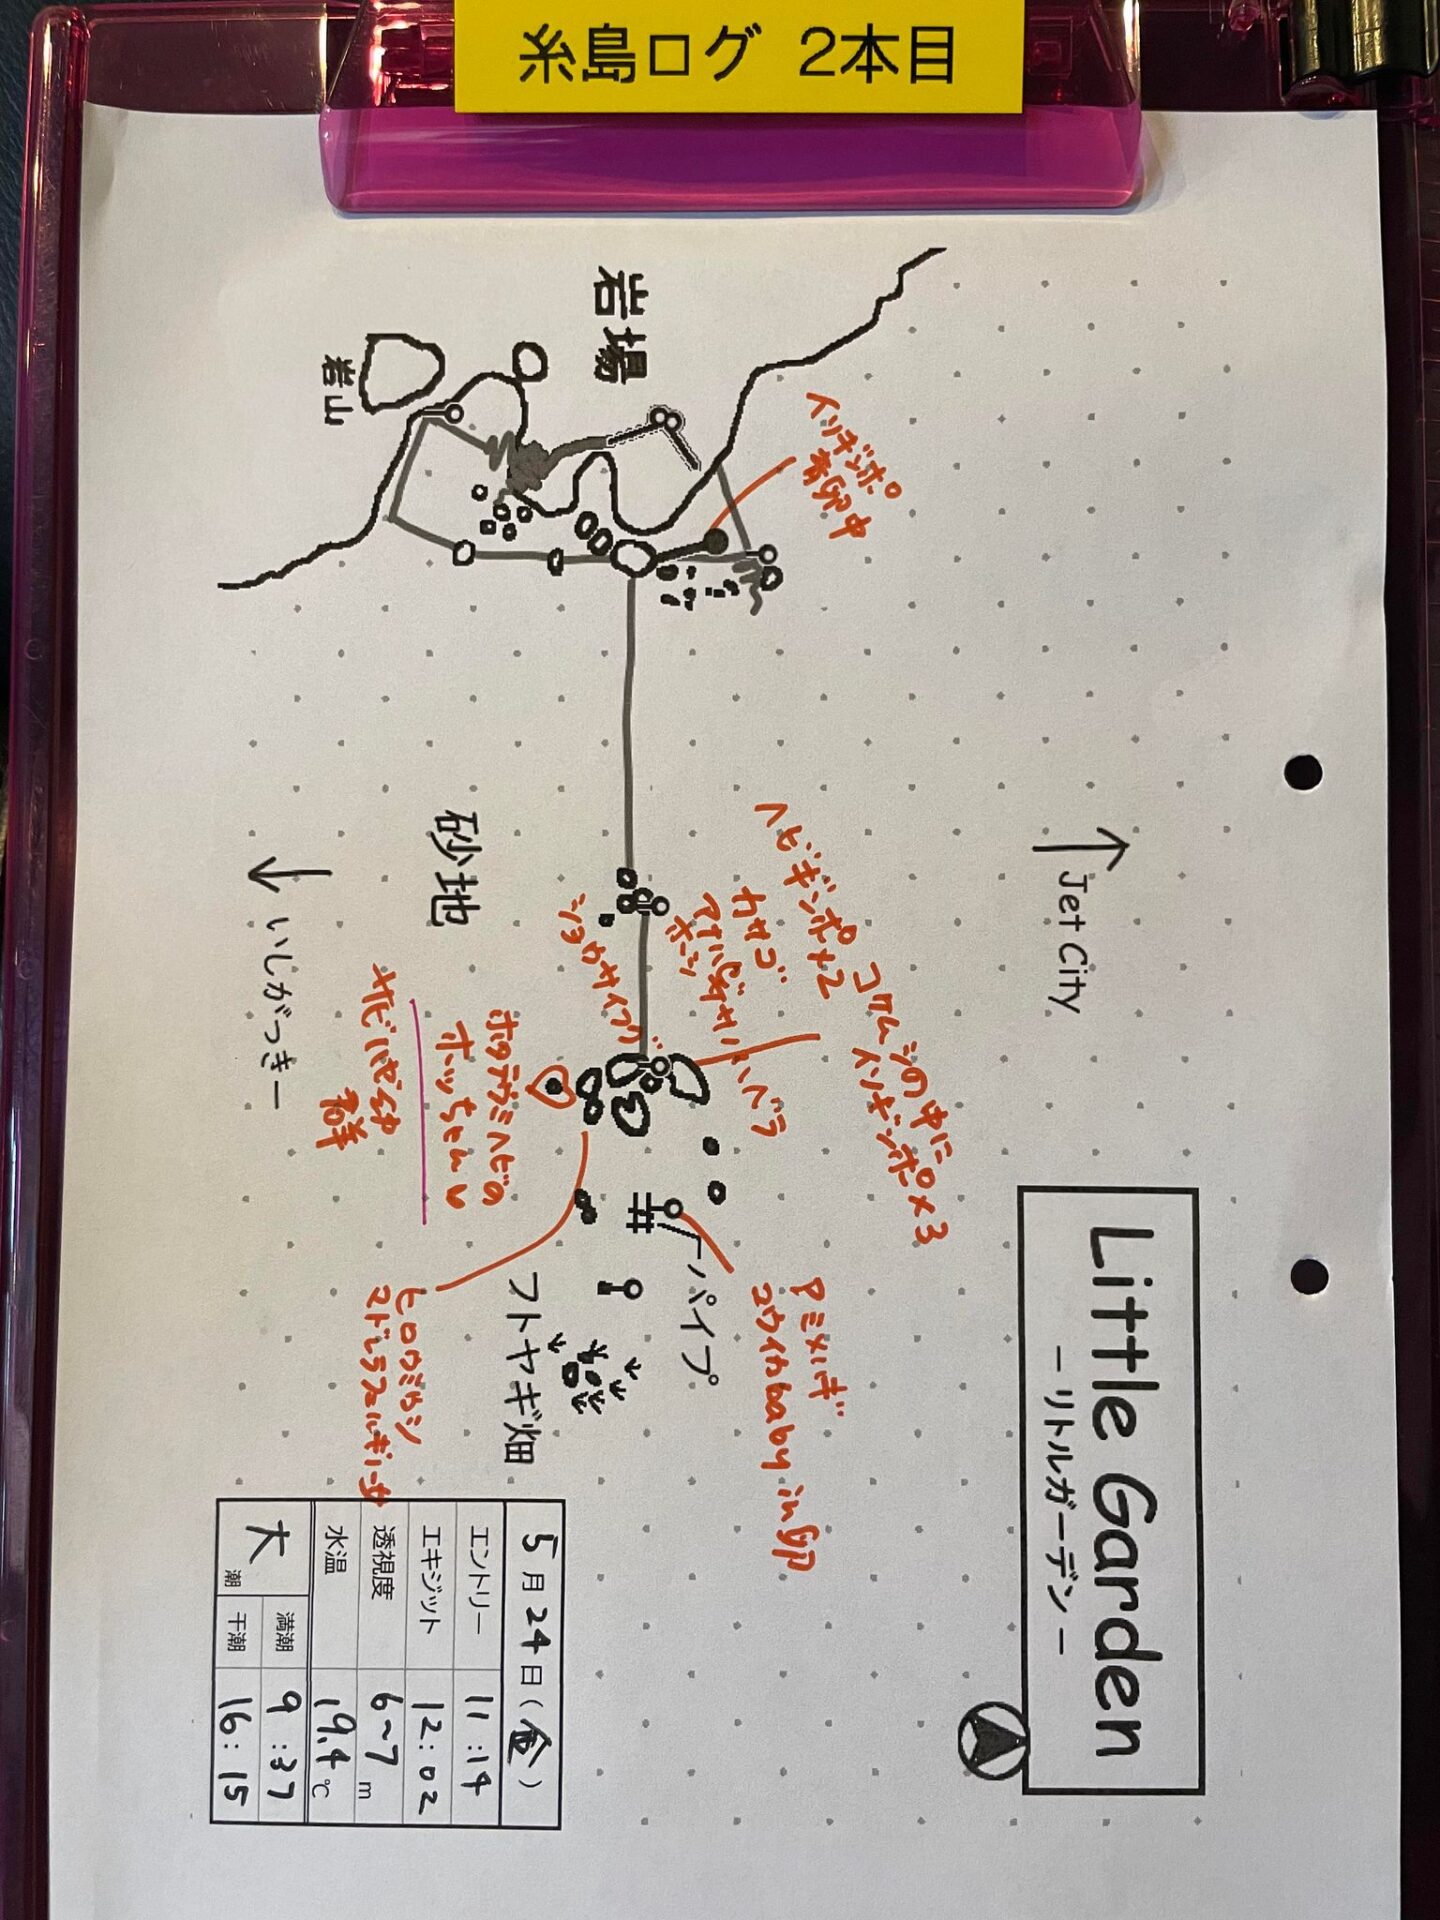 糸島ログ 2本目
Little Garden
－リトルガーデン－
↑Jet City
岩場
岩山
イソギンポ
抱卵中
砂地
↓いしがっきー
ヘビギンポ×2
コケムシの中に
イソギンポ×3
カサゴ
アナハゼ
ホシノハベラ
ショウサイフグ
ホタテウミヘビの
ホッちゃん
サビハゼ幼
群
パイプ
アミメハギ
コウイカbaby in 卵
フトヤギ畑
ヒロウミウシ
マドレラフェルギーサ
5月24日(金)
エントリー 11:14
エキジット 12:02
透視度 6~7m
水温 19.4℃
大潮
満潮 9:37
干潮 16:15